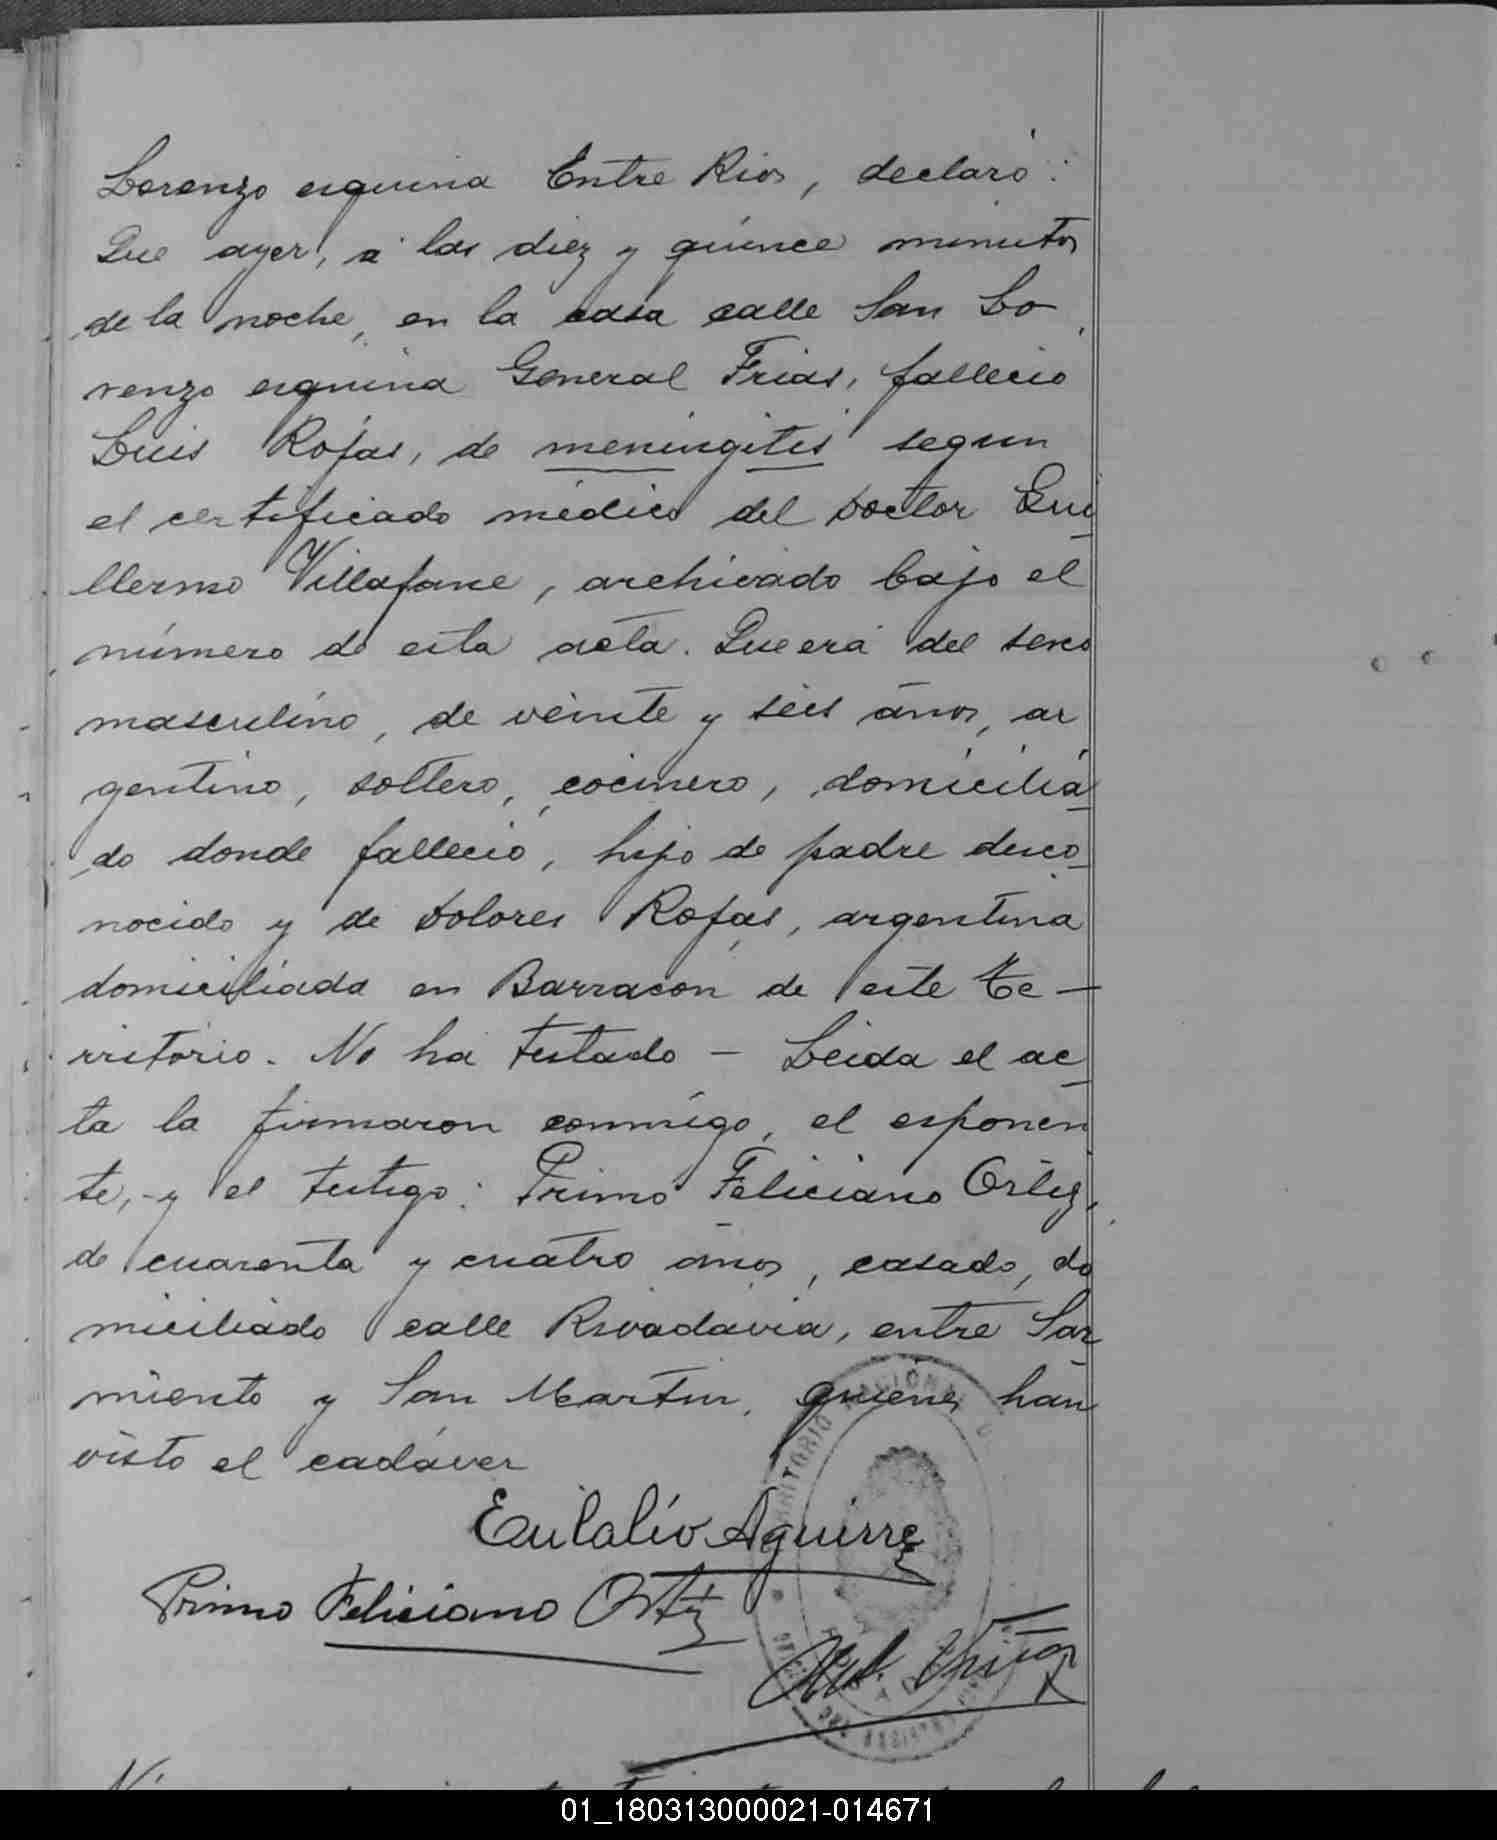 Lorenzo esquina Entre Rios, declaró:
Que ayer, a las diez y quince minutos
de la noche, en la casa calle San Lo
renzo esquina General Frias, falleció
Luis Rojas, de meningitis segun
el certificado médico del Doctor Gui
llermo Villafane, archivado bajo el
número de esta acta. Que era del sexo
masculino, de veinte y seis años, ar
gentino, soltero, cocinero, domicilia
do donde falleció, hijo de padre desco
nocido y de Dolores Rojas, argentina
domiciliada en Barracon de este Te—
rritorio. No ha testado — Leida el ac
ta la firmaron conmigo, el esponen
te, y el testigo: Primo Feliciano Ortiz,
de cuarenta y cuatro años, casado, do
miciliado calle Rivadavia, entre Sar
miento y San Martin, quienes han
visto el cadáver
Eulalio Aguirre
Primo Feliciano Ortiz
01_180313000021-014671